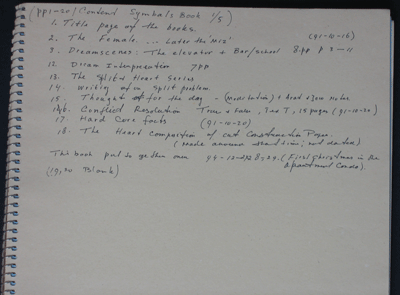 Content Symbols Book 1/5)
1. Title page of the books.
2. The Female. ... Later the "MIS" (91-10-16)
9. Dreamscenes: The elevator + Bar/school 8pp p 3-11
12. Dream Interpretation 7pp
13. The Split Heart Series
14. Writing of a Split problem.
15. Thought for the day - (meditation) +
16. Conflict Resolution True + False, T no T, 15 pages (91-10-20)
17. Hard Core facts (91-10-20)
18. The Heart Composition of cut Construction Paper.
(Made around that time; not dated)
This book put together on (First Christmas in the
Apartment Condo).
(19, 20 Blank)